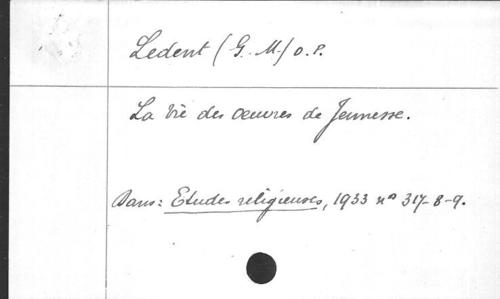 Ledent (G. M.) o.p.
La vie des oeuvres de Jeunesse.
Dans: Etudes religieuses, 1933 no 317-8-9.